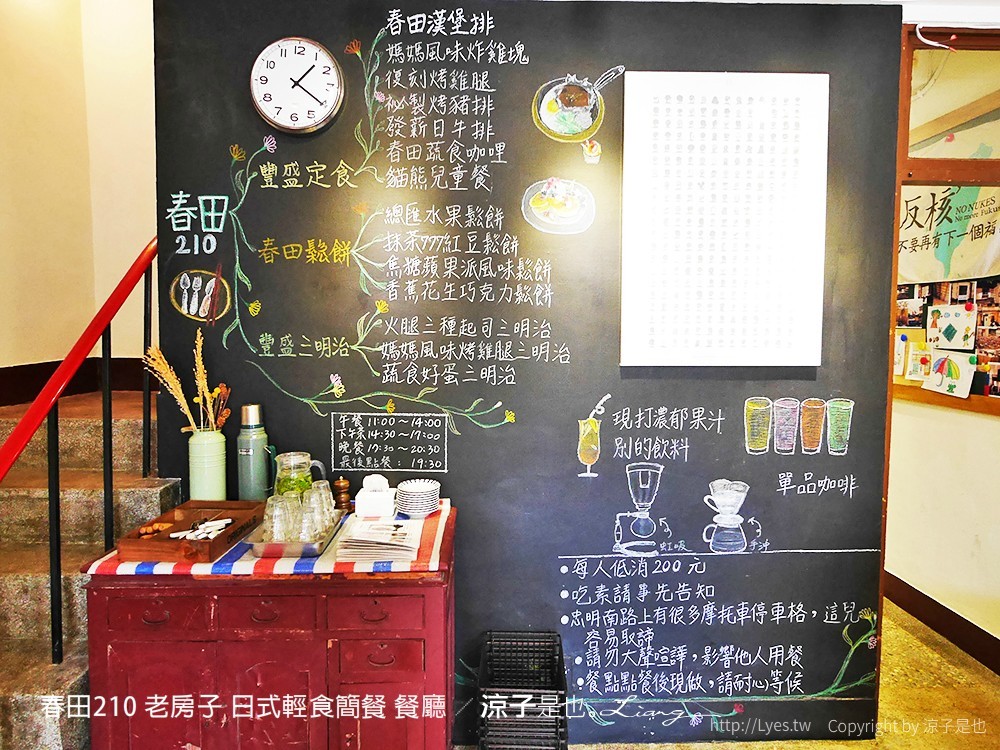 春田漢堡排
媽媽風味炸雞塊
復刻烤雞腿
祕製烤豬排
發薪日牛排
春田蔬食咖哩
貓熊兒童餐
豐盛定食
春田
210
總匯水果鬆餅
抹茶777紅豆鬆餅
焦糖蘋果派風味鬆餅
香蕉花生巧克力鬆餅
春田鬆餅
火腿三種起司三明治
媽媽風味烤雞腿三明治
蔬食好蛋三明治
豐盛三明治
午餐 11:00~14:00
下午茶 14:30~17:00
晚餐 17:30~20:30
最後點餐: 19:30
現打濃郁果汁
別的飲料
單品咖啡
虹吸
手沖
•每人低消200元
•吃素請事先告知
•忠明南路上有很多摩托車停車格,這兒
容易取締
•請勿大聲喧譁,影響他人用餐
•餐點點餐後現做,請耐心等候
反核
NO NUKES
No more Fukus
不要再有下一個福
春田210 老房子 日式輕食簡餐 餐廳 / 涼子是也。Liang
http://Lyes.tw Copyright by 涼子是也